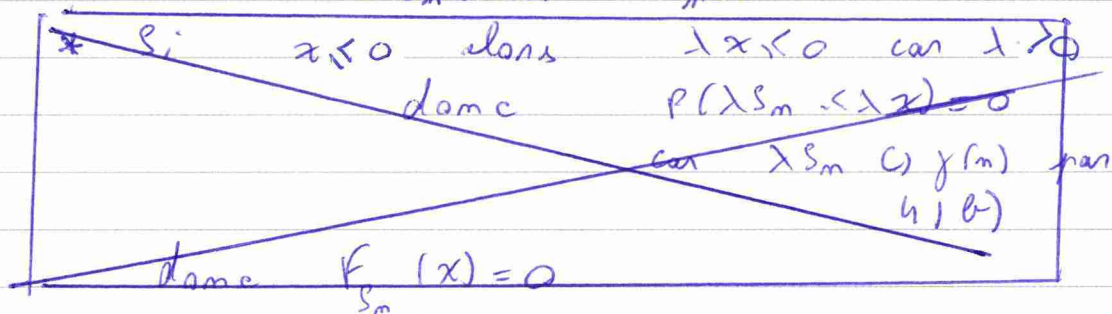 * Si x ≤ 0 alors λx ≤ 0 car λ > 0
donc P(λSn < λx) = 0
car λSn ↪ γ(n) par
4) b)
donc F_Sn (x) = 0